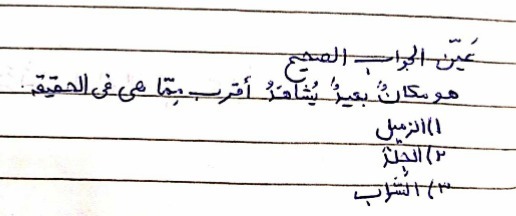 عَيّن الجواب الصحيح
هو مكانٌ بعيدٌ يُشاهَدُ أقرب مِمّا هى فى الحقيقة.
١) الزميل
٢)
٣) السَّراب